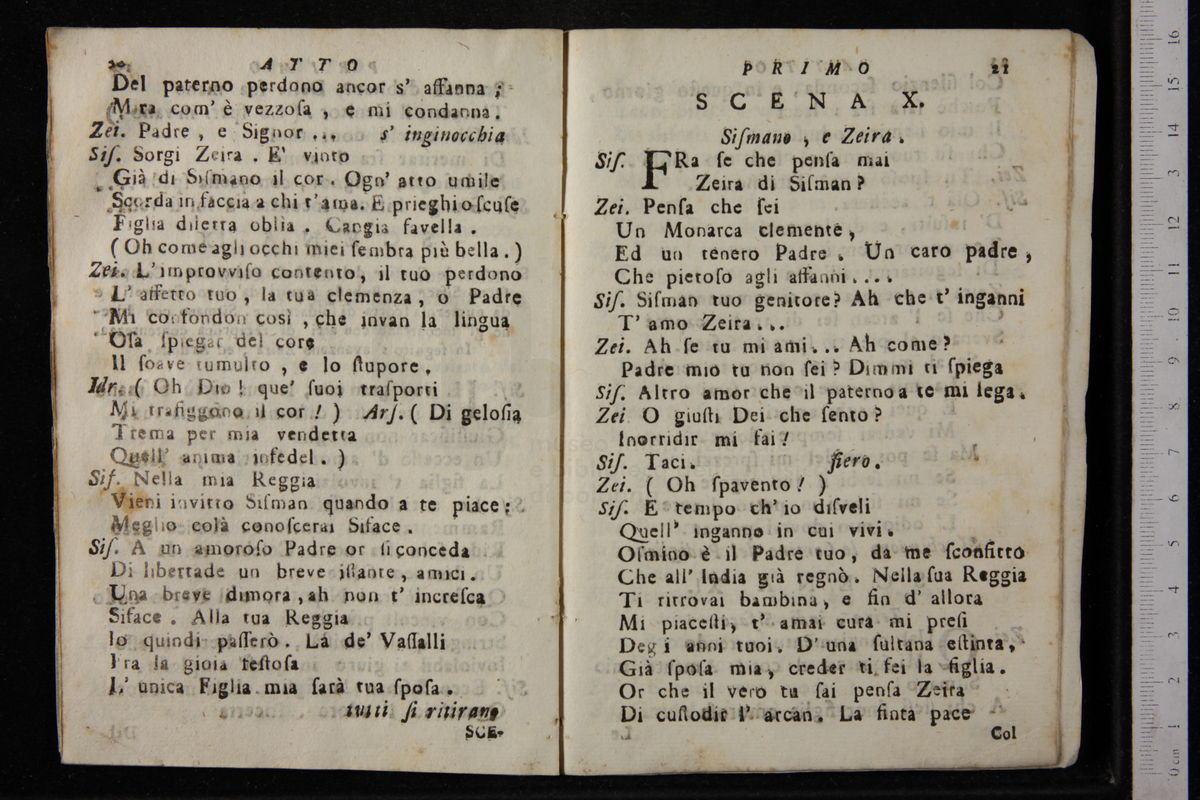 20 ATTO
Del paterno perdono ancor s' affanna;
Mira com' è vezzoſa, e mi condanna.
Zei. Padre, e Signor ... s' inginocchia
Siſ. Sorgi Zeira. E' vinto
Già di Siſmano il cor. Ogn' atto umile
Scorda in faccia a chi t'ama. E prieghi o ſcuſe
Figlia diletta oblìa. Cangia favella.
(Oh come agli occhi miei ſembra più bella.)
Zei. L'improvviſo contento, il tuo perdono
L' affetto tuo, la tua clemenza, o Padre
Mi confondon così, che invan la lingua
Oſa ſpiegar del core
Il ſoave tumulto, e lo ſtupore.
Idr. (Oh Dio! que' ſuoi traſporti
Mi trafiggono il cor!) Arſ. (Di geloſia
Trema per mia vendetta
Quell' anima infedel.)
Sif. Nella mia Reggia
Vieni invitto Siſman quando a te piace;
Meglio colà conoſcerai Siface.
Siſ. A un amoroſo Padre or ſi conceda
Di libertade un breve iſtante, amici.
Una breve dimora, ah non t' increſca
Siface. Alla tua Reggia
Io quindi paſſerò. Là de' Vaſſalli
Fra la gioia feſtoſa
L' unica Figlia mia ſarà tua ſpoſa.
tutti ſi ritirano
SCE-
PRIMO 21
SCENA X.
Siſmano, e Zeira.
Siſ. FRa ſe che penſa mai
Zeira di Siſman?
Zei. Penſa che ſei
Un Monarca clemente,
Ed un tenero Padre. Un caro padre,
Che pietoſo agli affanni....
Siſ. Siſman tuo genitore? Ah che t' inganni
T' amo Zeira...
Zei. Ah ſe tu mi ami... Ah come?
Padre mio tu non ſei? Dimmi ti ſpiega
Siſ. Altro amor che il paterno a te mi lega.
Zei O giuſti Dei che ſento?
Inorridir mi fai!
Siſ. Taci. fiero.
Zei. (Oh ſpavento!)
Siſ. E tempo ch' io diſveli
Quell' inganno in cui vivi.
Oſmino è il Padre tuo, da me ſconfitto
Che all' India già regnò. Nella ſua Reggia
Ti ritrovai bambina, e fin d' allora
Mi piaceſti, t' amai cura mi preſi
Deg i anni tuoi. D' una ſultana eſtinta,
Già ſpoſa mia, creder ti fei la figlia.
Or che il vero tu ſai penſa Zeira
Di cuſtodir l' arcan. La finta pace
Col